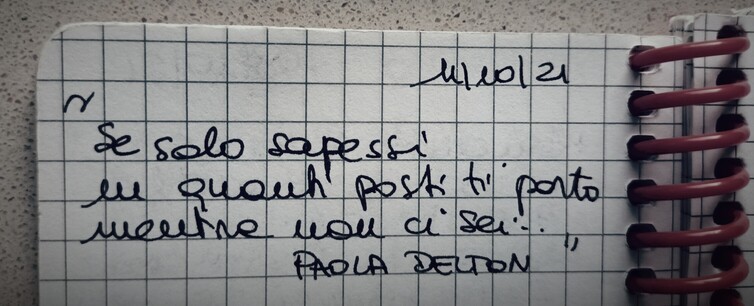 11/10/21
"Se solo sapessi
in quanti posti ti porto
mentre non ci sei... "
PAOLA DELTON